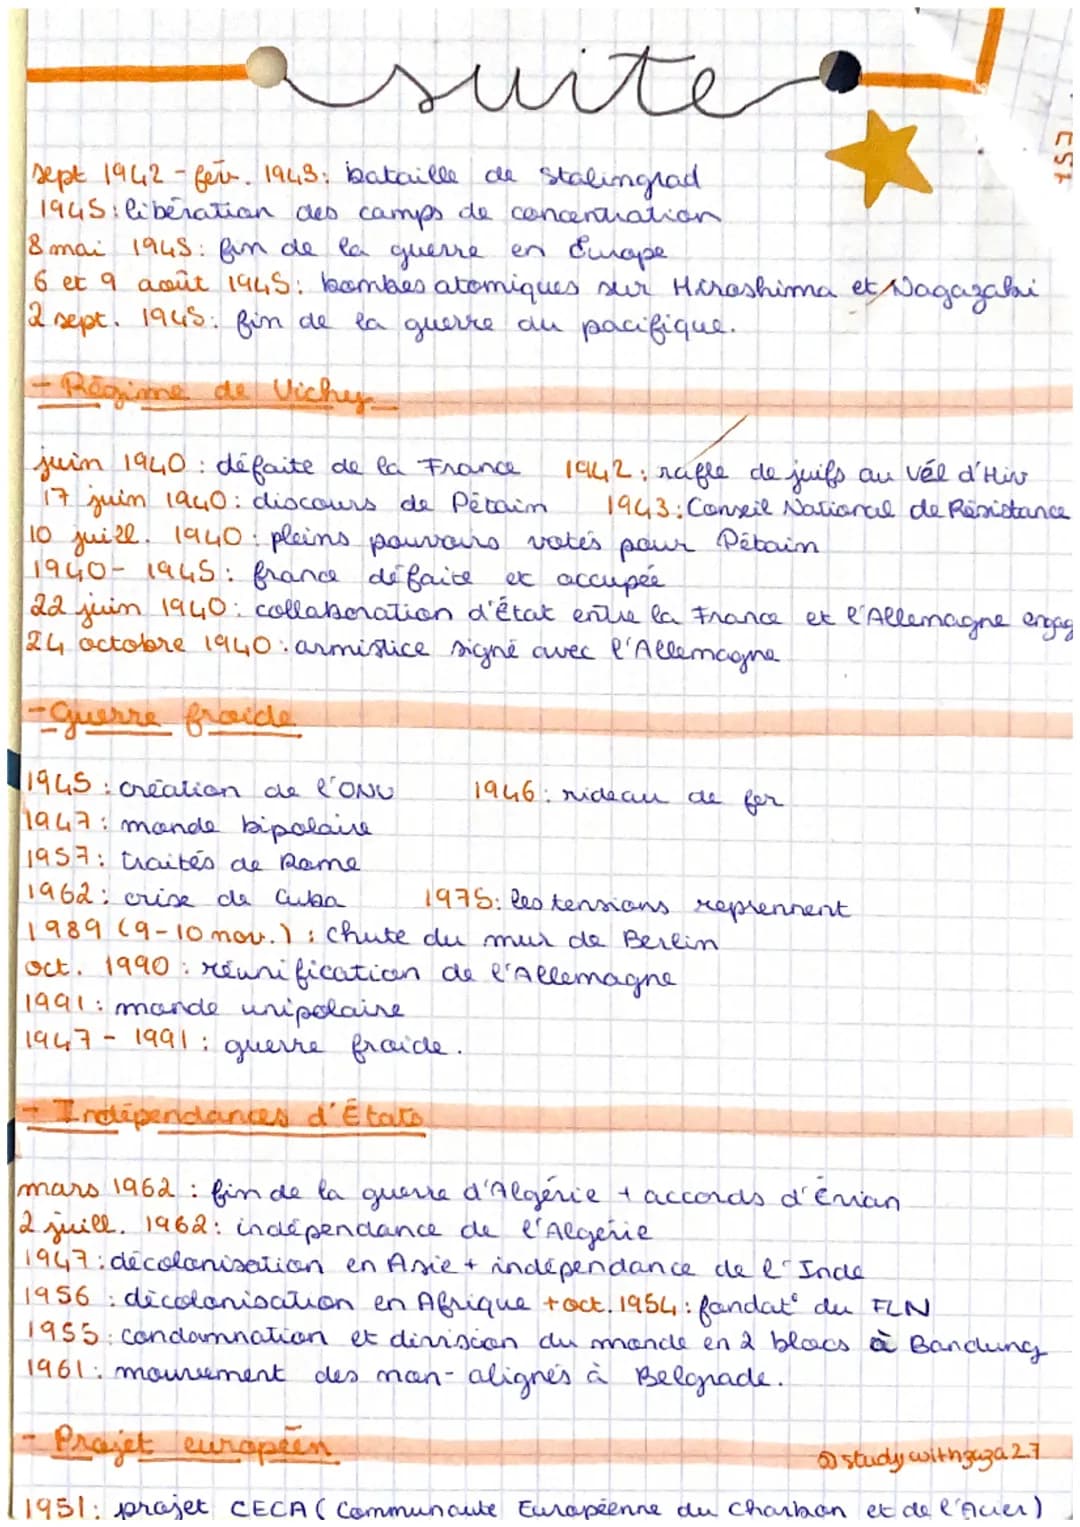 suite
sept 1942 - fév. 1943 : bataille de Stalingrad
1945 : libération des camps de concentration
8 mai 1945 : fin de la guerre en Europe
6 et 9 août 1945 : bombes atomiques sur Hiroshima et Nagazaki
2 sept. 1945 : fin de la guerre du pacifique.
- Régime de Vichy
juin 1940 : défaite de la France 1942 : rafle de juifs au Vél d'Hiv
17 juin 1940 : discours de Pétain 1943 : Conseil National de Résistance
10 juill. 1940 : pleins pouvoirs votés pour Pétain
1940 - 1945 : france défaite et occupée
22 juin 1940 : collaboration d'État entre la France et l'Allemagne engag
24 octobre 1940 : armistice signé avec l'Allemagne
- Guerre froide
1945 : création de l'ONU 1946 : rideau de fer
1947 : monde bipolaire
1957 : traités de Rome
1962 : crise de Cuba 1975 : les tensions reprennent
1989 (9-10 nov.) : chute du mur de Berlin
oct. 1990 : réunification de l'Allemagne
1991 : monde unipolaire
1947 - 1991 : guerre froide.
- Indépendances d'États
mars 1962 : fin de la guerre d'Algérie + accords d'Évian
2 juill. 1962 : indépendance de l'Algérie
1947 : décolonisation en Asie + indépendance de l'Inde
1956 : décolonisation en Afrique + oct. 1954 : fondat° du FLN
1955 : condamnation et division du monde en 2 blocs à Bandung
1961 : mouvement des non-alignés à Belgrade.
- Projet européen
@studywithzaza27
1951 : projet CECA (Communauté Européenne du Charbon et de l'Acier)